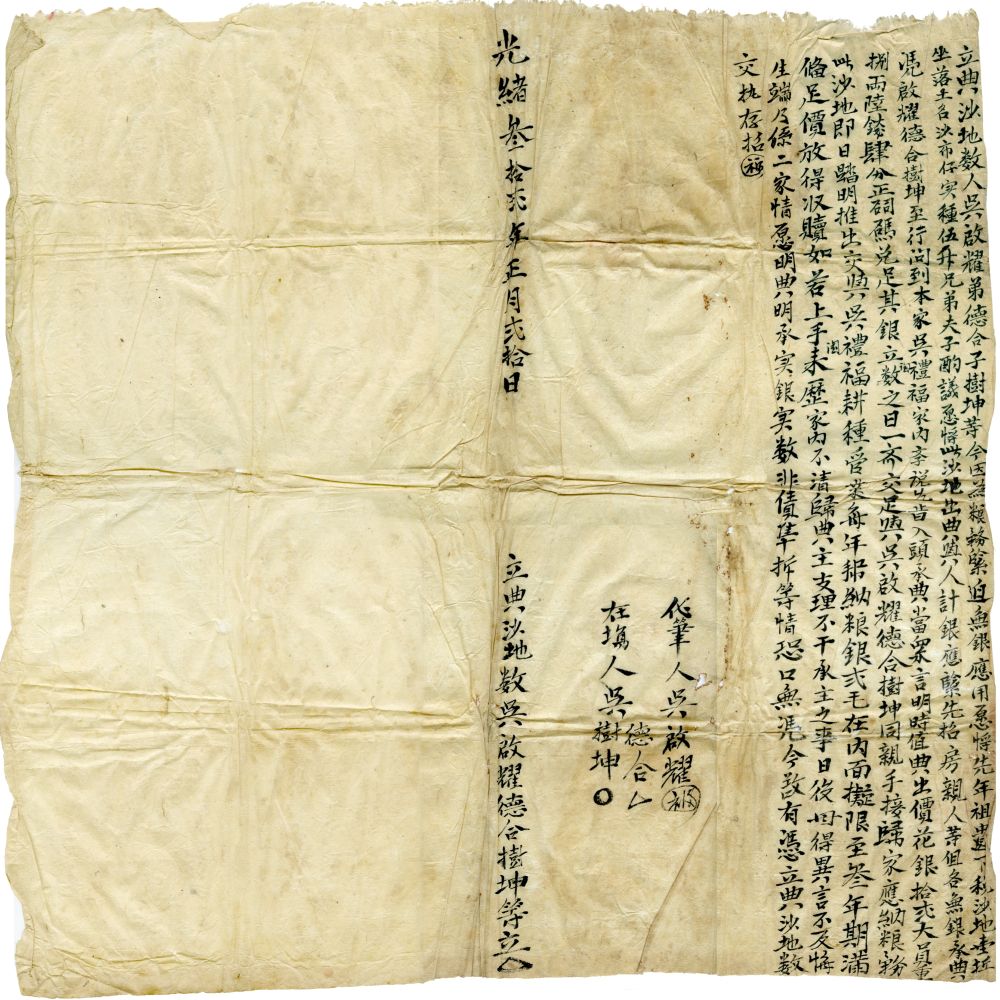 立典沙地数人吳啟耀弟德合子樹坤等今因為粮務緊迫無銀應用愿將先年祖遺下税沙地壹坵
坐落土名沙市仔实種伍升兄弟夫子酌議愿將此沙地出典與人計銀應緊先招房親人等俱各無銀承典
憑啟耀德合樹坤至行问到本家吳禮福家內享説允肯入頭承典當眾言明時值典出價花銀拾弍大員重
捌両陸錢肆分正司碼兑足其銀立数之日一齐交足與吳啟耀德合樹坤同親手接歸家應納粮務
此沙地即日踏明推出交與吳禮福耕種管業每年帮納粮銀弍毛在內面擬限至叁年期滿
俻足價放得収贖如若上手来歷家內不清歸典主支理不干承主之事日後毋得異言不及悔
生端乃係二家情愿明典明承实銀实数非債準折等情恐口無凴今欲有憑立典沙地数
交执存招 福
代筆人吳啟耀 福
在塲人吳德合 樹坤
光緒叁拾弍年正月弍拾日
立典沙地数吳啟耀德合樹坤等立